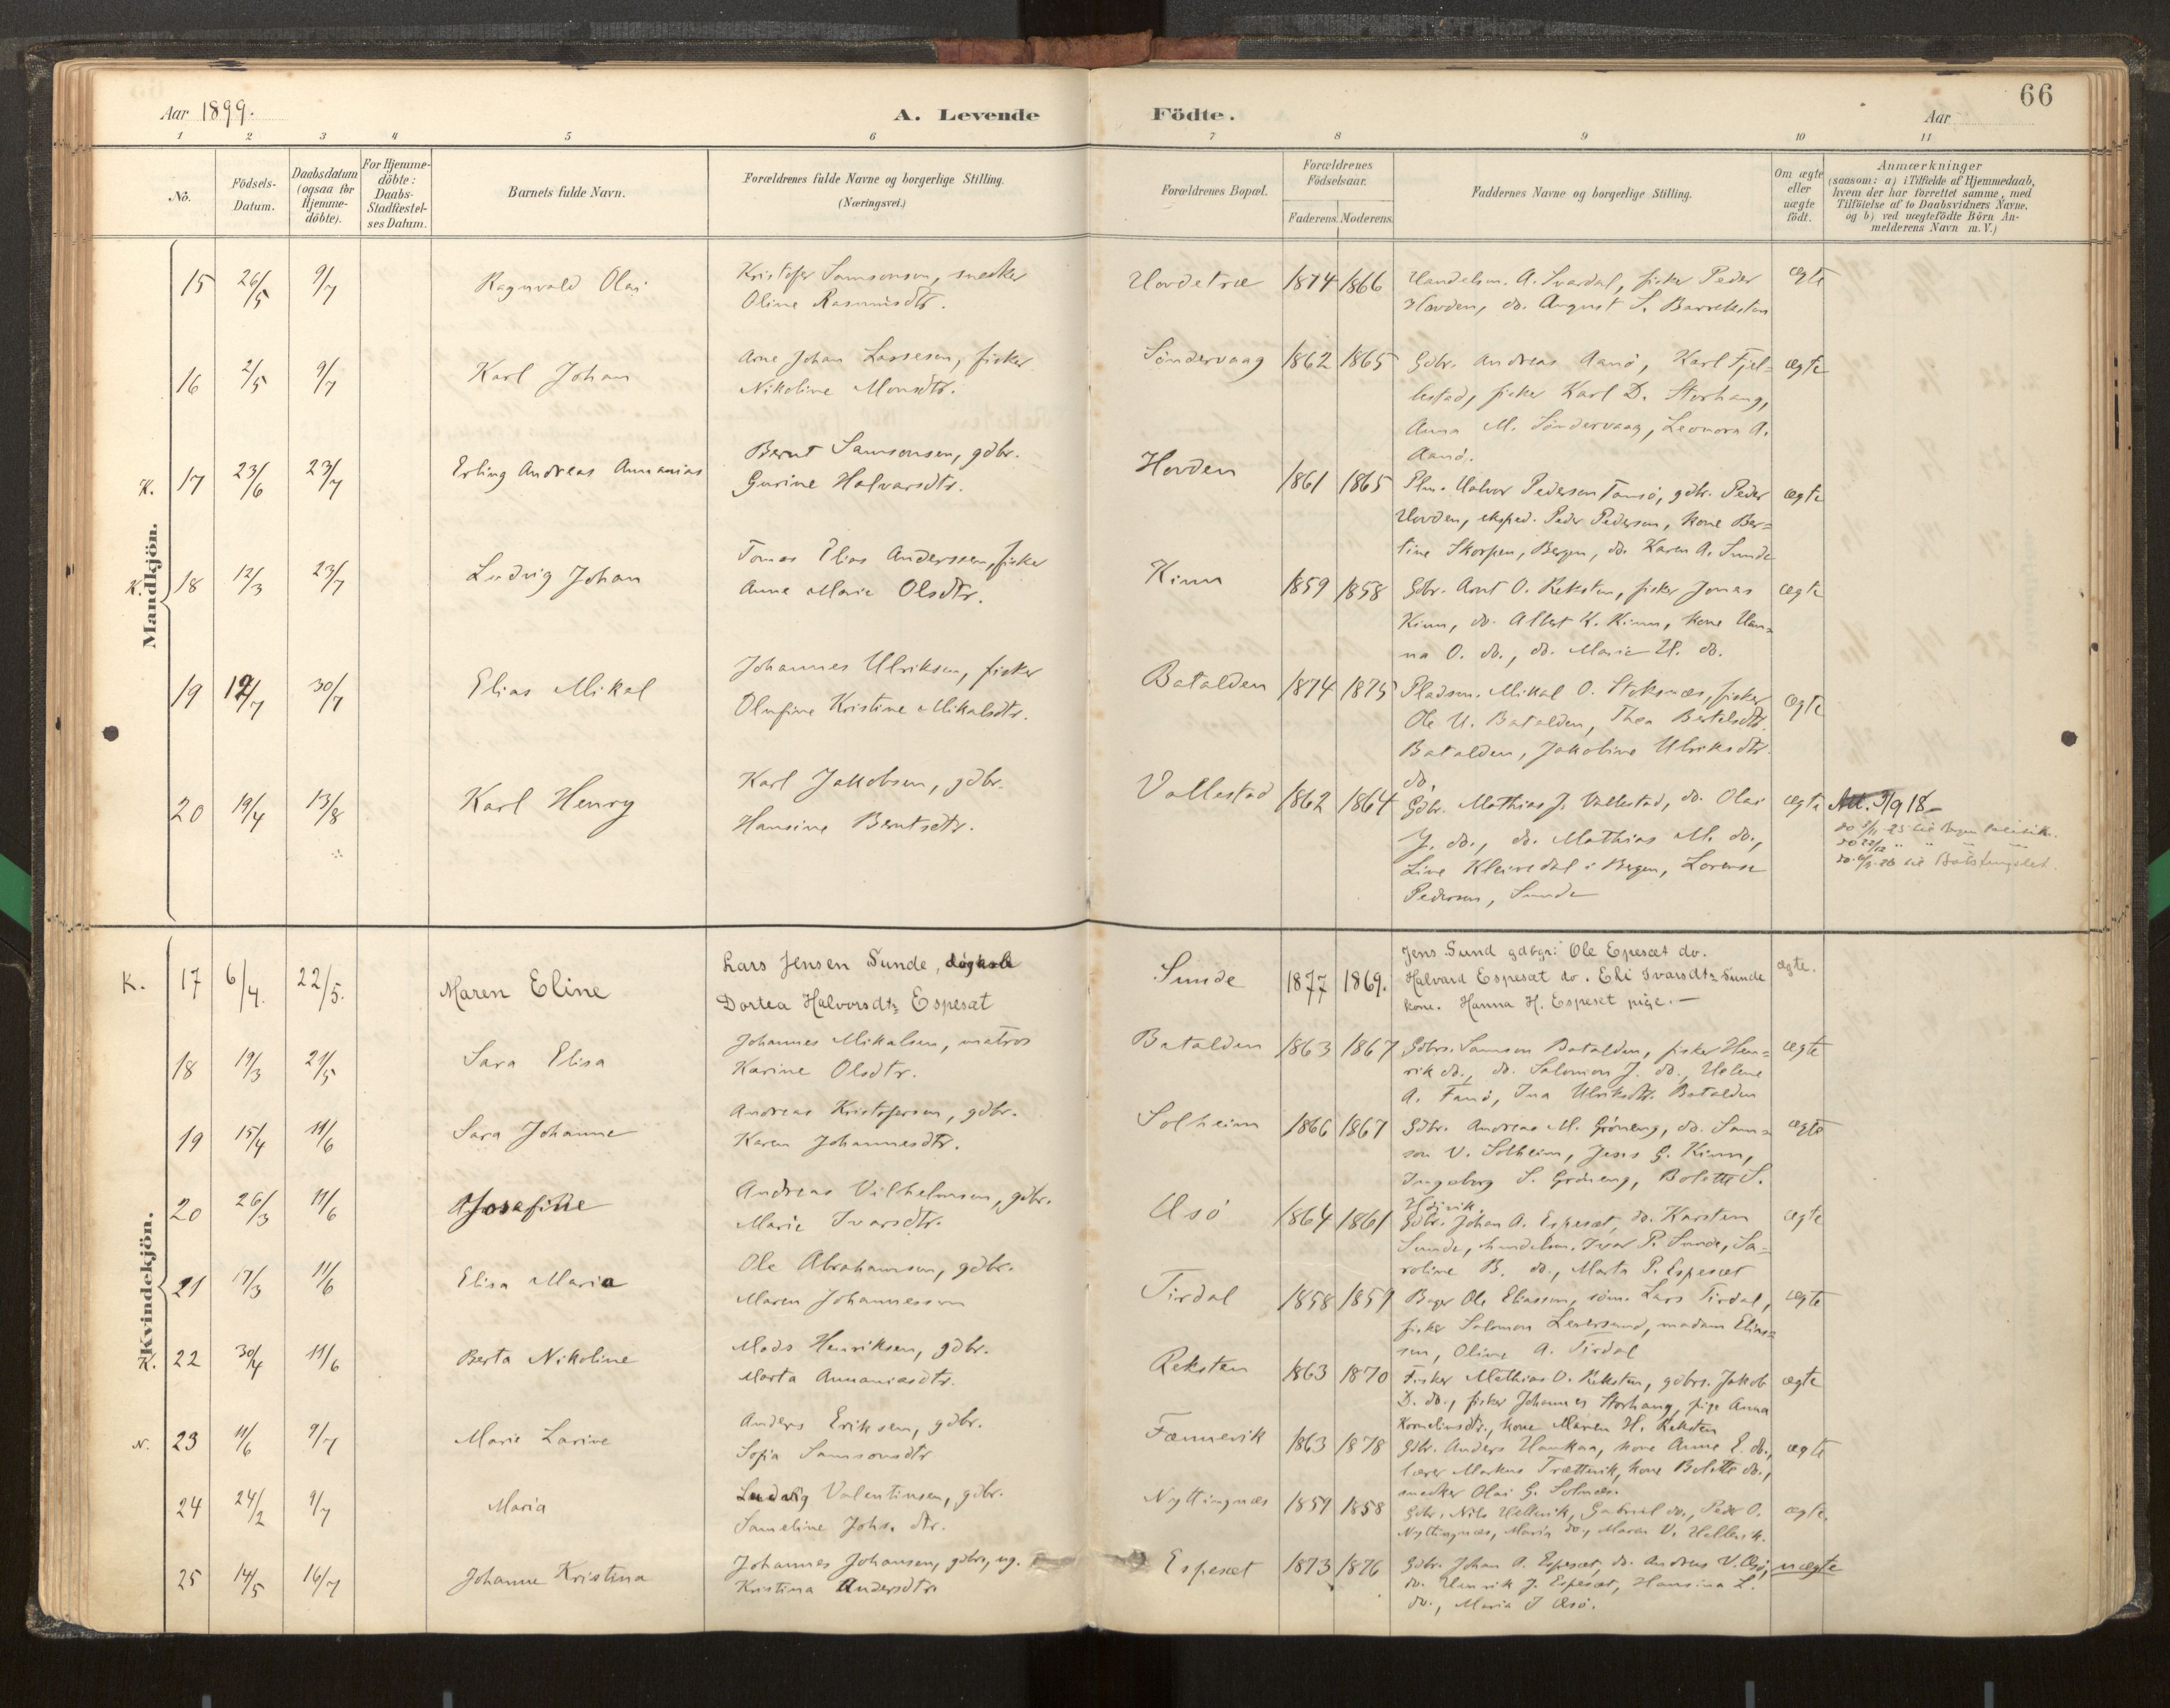 66
Aar 1899.
A. Levende Födte.
Aar
1 2 3 4 5 6 7 8 9 10 11
No.
Födsels-
Datum.
Daabsdatum
(ogsaa for
Hjemme-
döbte).
For Hjemme-
döbte:
Daabs-
Stadfæstel-
ses Datum.
Barnets fulde Navn.
Forældrenes fulde Navne og borgerlige Stilling.
(Næringsvei.)
Forældrenes Bopæl.
Forældrenes
Födselsaar.
Faderens. Moderens.
Faddernes Navne og borgerlige Stilling.
Om ægte
eller
uægte
födt.
Anmærkninger
(saasom: a) i Tilfælde af Hjemmedaab,
hvem der har forrettet samme, med
Tilföielse af to Daabsvidners Navne,
og b) ved uægtefödte Börn An-
melderens Navn m. V.)
Mandkjön.
15 26/5 9/7 Ragnvald Olai
Kristofer Samsonson, snedker
Oline Rasmusdtr.
Hovdetræ 1874 1866
Handelsm. A. Svardal, fisker Peder
Hovden, do. August S. Barrekston
ægte
16 2/5 9/7 Karl Johan
Arne Johan Lassesen, fisker
Nikoline Monsdtr.
Søndervaag 1862 1865
Gdbr. Andreas Aanø, Karl Fjel-
lestad, fisker Karl D. Storhaug,
Anna M. Søndervaag, Leonora A.
Aanø.
ægte
K. 17 23/6 23/7 Erling Andreas Annanias
Bernt Samsonsen, gdbr.
Gurine Halvarsdtr.
Hovden 1861 1865
Plm. Halvor Pederson Tansø, gdbr. Peder
Hovden, eksped. Peder Pederson, kone Ber-
tine Skorpen, Bergen, do. Karen A. Sunde
ægte
K. 18 12/3 23/7 Ludvig Johan
Tomas Elias Anderssen, fisker
Anne Marie Olsdtr.
Kinn 1859 1858
Gdbr. Arnt O. Reksten, fisker Jonas
Kinn, do. Albert K. Kinn, kone Han-
na O. do., do. Marie H. do.
ægte
19 12/7 30/7 Elias Mikal
Johannes Ulriksen, fisker
Olufine Kristine Mikalsdtr.
Batalden 1874 1875
Pladsm. Mikal O. Stoksnæs, fisker
Ole U. Batalden, Thea Bertelsdtr.
Batalden, Jakobine Ulriksdtr.
do.
ægte
20 19/4 13/8 Karl Henry
Karl Jakobsen, gdbr.
Hansine Berntsdtr.
Vallestad 1862 1864
Gdbr. Mathias J. Vallestad, do. Olai
J. do., do. Mathias M. do.,
Line Kleivedal i Bergen, Lorense
Pedersen, Sunde
ægte
Att. 3/9 18
Kvindekjön.
K. 17 6/4. 22/5. Maren Eline
Lars Jensen Sunde,
Dortea Halvorsdtr Espesæt
Sunde 1877 1869.
Jens Sund gdbgr: Ole Espesæt do.
Halvard Espesæt do. Eli Ivarsdtr Sunde
kone. Hanna H. Espeset pige. —
ægte.
18 19/3 21/5 Sara Elisa
Johannes Mikalsen, matros
Karine Olsdtr.
Batalden 1863 1867
Gdbr. Samson Batalden, fisker Hen-
rik do., do. Salomon J. do., Helene
A. Fanø, Ina Ulriksdtr. Batalden
ægte
19 15/4 11/6 Sara Johanne
Andreas Kristofersen, gdbr.
Karen Johannesdtr.
Solheim 1866 1867
Gdbr. Andreas M. Grøneng, do. Sam-
son V. Solheim, Jens G. Kinn,
Ingeborg S. Grøneng, Bolette S.
ægte
20 26/3 11/6 Josefine
Andreas Vilhelmsen, gdbr.
Marie Ivarsdtr.
Øsø 1864 1861
Gdbr. Johan A. Espesæt, do. Karsten
Sunde, handelsm. Ivar P. Sunde, Ka-
roline B. do., Marta P. Espesæt
ægte
21 17/3 11/6 Elisa Maria
Ole Abrahamsen, gdbr.
Maren Johannessen
Tirdal 1858 1859
Bager Ole Eliassen, sønn. Lars Tirdal,
fisker Salomon Leversund, madam Elias-
sen, Oline A. Tirdal
ægte
K. 22 30/4 11/6 Berta Nikoline
Mads Henriksen, gdbr.
Marta Annaniasdtr.
Reksten 1863 1870
Fisker Mathias O. Reksten, gdbr. Jakob
D. do., fisker Johannes Storhaug, pige Anna
Korneliusdtr., kone Maren H. Reksten
ægte
N. 23 11/6 9/7 Marie Larine
Anders Eriksen, gdbr.
Sofia Samsonsdtr
Fannevik 1863 1878
Gdbr. Anders Haukaa, kone Anne E. do.,
lærer Markus Trættevik, kone Bolette do.,
snedker Olai G. Solnæs.
ægte
24 24/2 9/7 Maria
Ludvig Valentinsen, gdbr.
Sameline Johs. dtr.
Nyttingnæs 1859 1858
Gdbr. Nils Hellevik, Gabriel do., Peder O.
Nyttingnæs, Maria do., Maren V. Hellevik.
ægte.
25 14/5 16/7 Johanne Kristina
Johannes Johansen, gdbr., ug.
Kristina Andersdtr
Espesæt 1873 1876
Gdbr. Johan A. Espesæt, do. Andreas V. Øsø,
do. Henrik J. Espesæt, Hansina L.
do., Maria J Øsø.
uægte